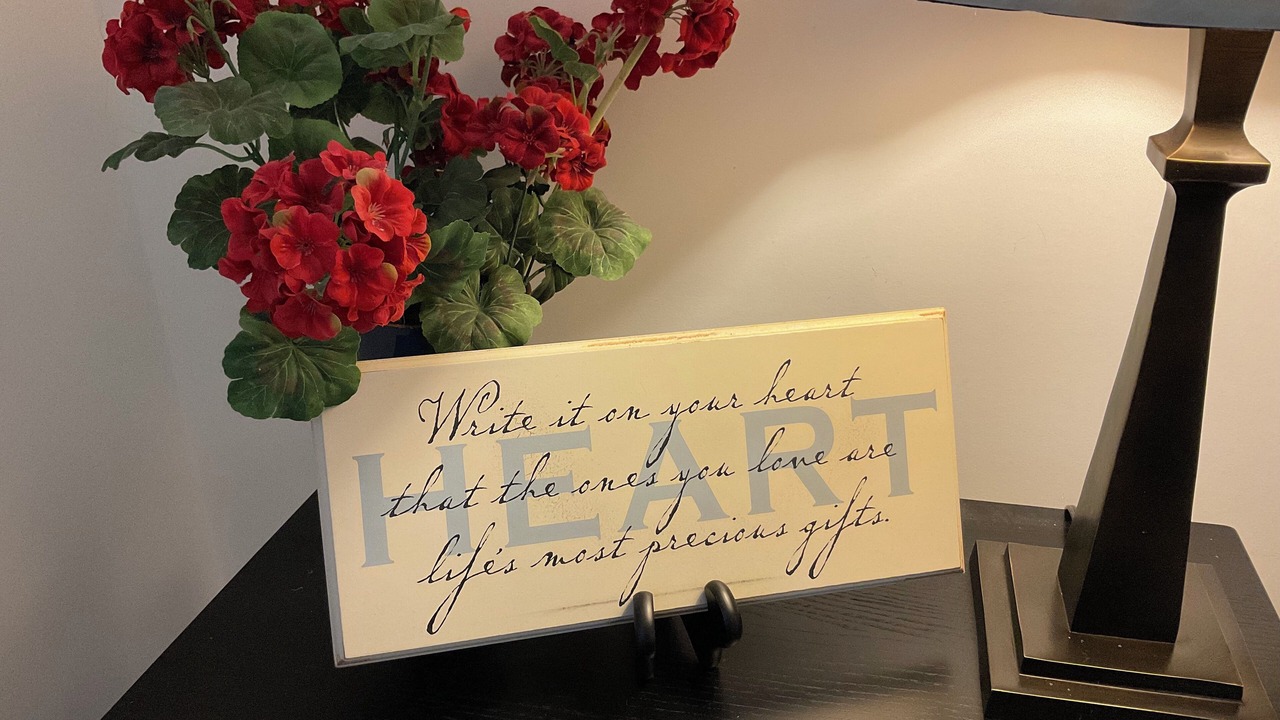 Write it on your heart
HEART
that the ones you love are
life's most precious gifts.